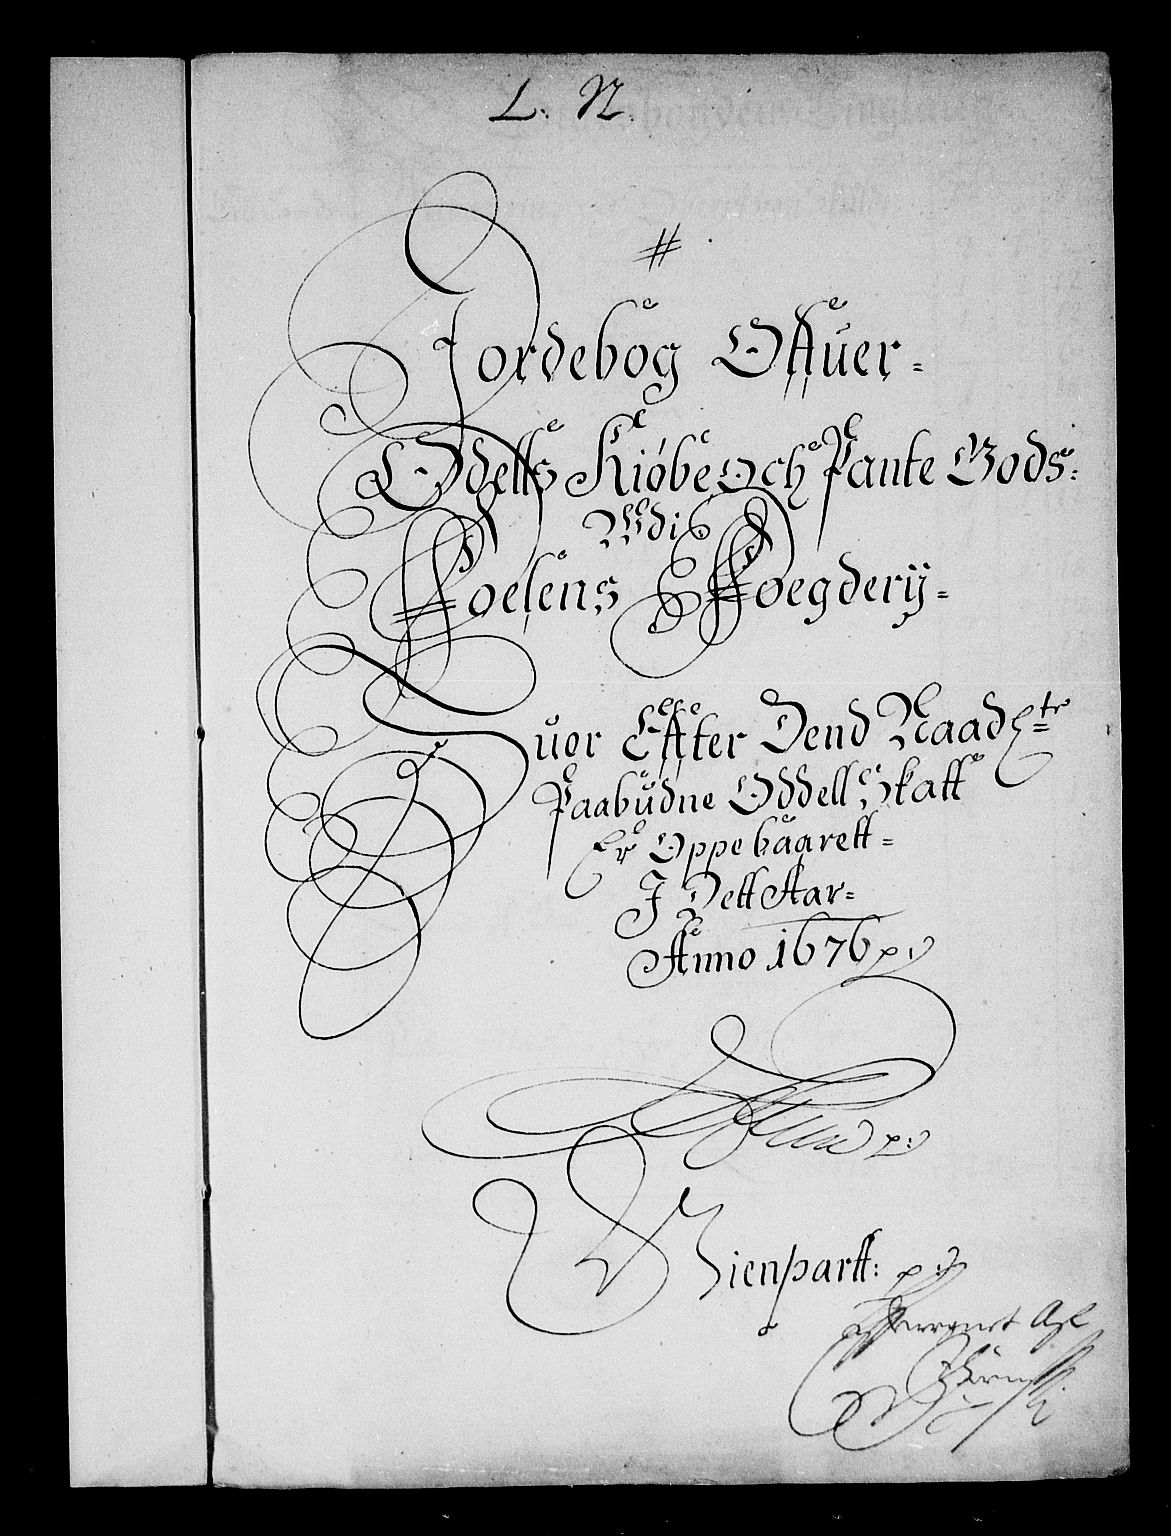 L. N.
#
Jordebog Offuer=
Odells Kiøbe och Pante Gods:
Wdi
Foesens Foegderij=
Huor Effter Dend Naadigste
Paabudne Oddell Skatt
Er Oppebaarett=
J Dett Aar=
Anno 1676 p:
p:
Gienpart: p: